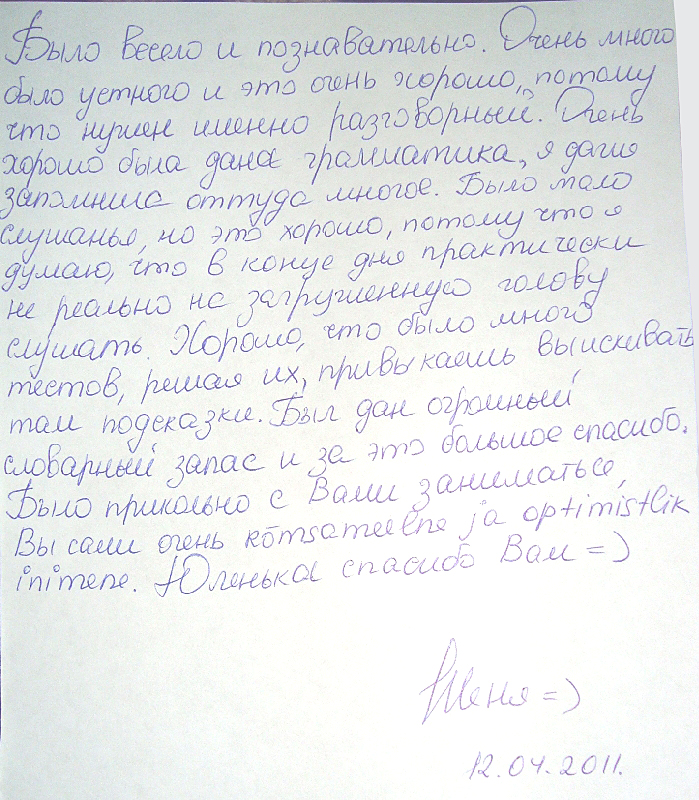 Было весело и познавательно. Очень много
было устного и это очень хорошо, потому
что нужен именно разговорный. Очень
хорошо была дана грамматика, я даже
запомнила оттуда многое. Было мало
слушанья, но это хорошо, потому что я
думаю, что в конце дня практически
не реально на загруженную голову
слушать. Хорошо, что было много
тестов, решая их, привыкаешь выискивать
там подсказки. Был дан огромный
словарный запас и за это большое спасибо.
Было прикольно с Вами заниматься,
Вы сами очень rõõmsameelne ja optimistlik
inimene. Юленька спасибо Вам =)
Женя =)
12.04.2011.